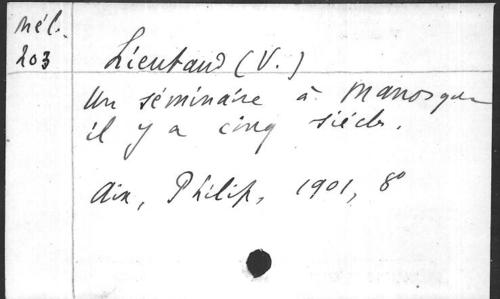 Mél.
203
Lieutaud (V.)
Un séminaire à Manosque
il y a cinq siècles.
Aix, Philip, 1901, 8°